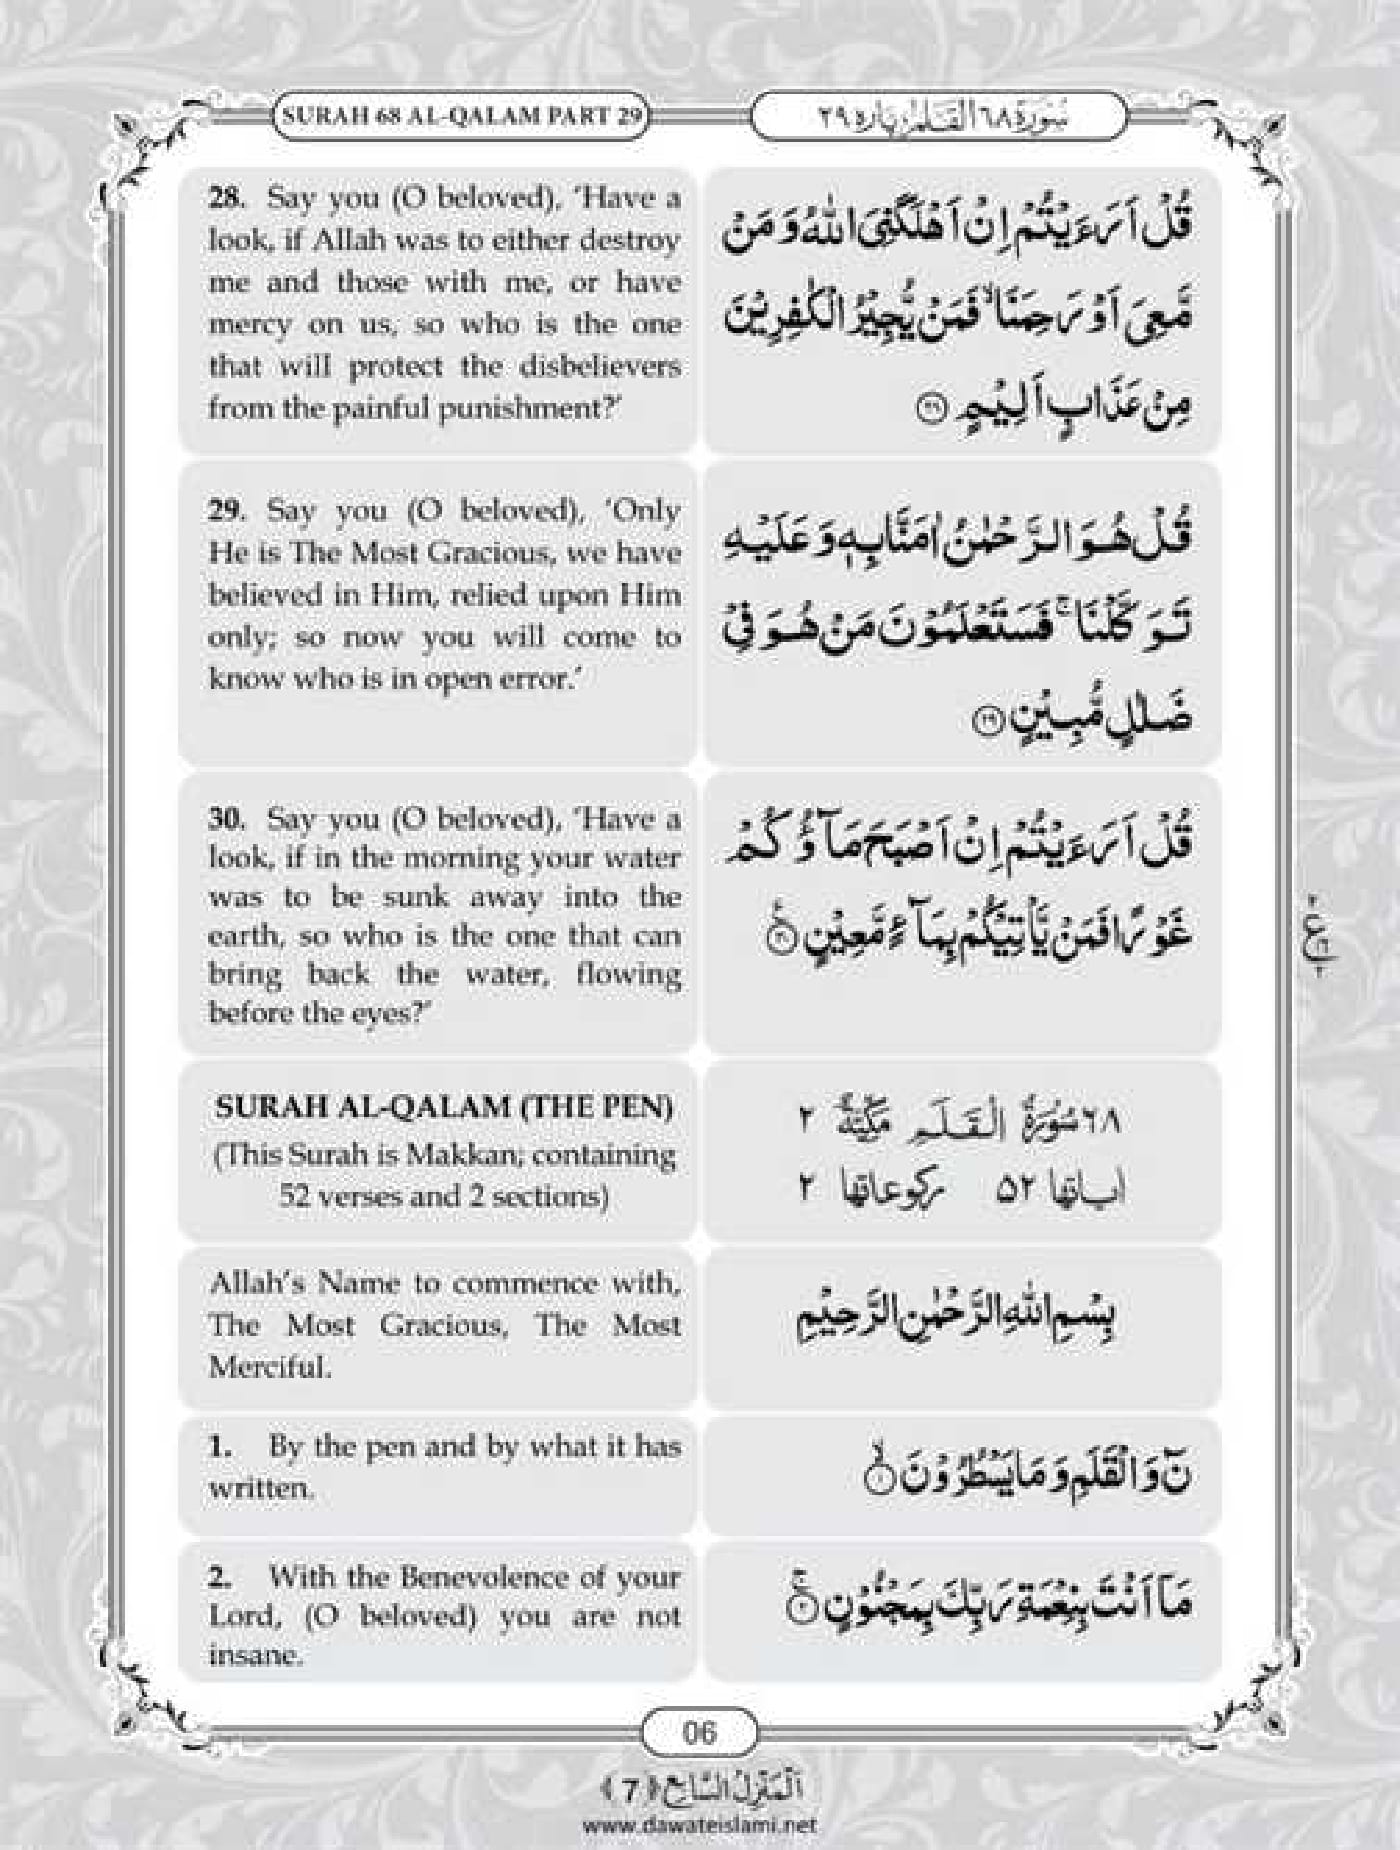 SURAH 68 AL-QALAM PART 29
سُوْرَةُ ٦٨ اَلْقَلَمْ پاره ٢٩
28. Say you (O beloved), ‘Have a
look, if Allah was to either destroy
me and those with me, or have
mercy on us, so who is the one
that will protect the disbelievers
from the painful punishment?’
قُلْ اَرَءَیْتُمْ اِنْ اَهْلَكَنِیَ اللّٰهُ وَ مَنْ
مَّعِیَ اَوْ رَحِمَنَاۙ فَمَنْ یُّجِیْرُ الْكٰفِرِیْنَ
مِنْ عَذَابٍ اَلِیْمٍ ﴿۲۸﴾
29. Say you (O beloved), ‘Only
He is The Most Gracious, we have
believed in Him, relied upon Him
only; so now you will come to
know who is in open error.’
قُلْ هُوَ الرَّحْمٰنُ اٰمَنَّا بِهٖ وَ عَلَیْهِ
تَوَكَّلْنَاۚ فَسَتَعْلَمُوْنَ مَنْ هُوَ فِیْ
ضَلٰلٍ مُّبِیْنٍ ﴿۲۹﴾
30. Say you (O beloved), ‘Have a
look, if in the morning your water
was to be sunk away into the
earth, so who is the one that can
bring back the water, flowing
before the eyes?’
قُلْ اَرَءَیْتُمْ اِنْ اَصْبَحَ مَآؤُكُمْ
غَوْرًا فَمَنْ یَّاْتِیْكُمْ بِمَآءٍ مَّعِیْنٍ ﴿۳۰﴾
ع
SURAH AL-QALAM (THE PEN)
(This Surah is Makkan; containing
52 verses and 2 sections)
٦٨ سُوْرَةُ الْقَلَمِ مَكِّيَّةٌ ٢
اٰیاتها ٥٢ رکوعاتها ٢
Allah’s Name to commence with,
The Most Gracious, The Most
Merciful.
بِسْمِ اللّٰهِ الرَّحْمٰنِ الرَّحِیْمِ
1. By the pen and by what it has
written.
نٓ وَ الْقَلَمِ وَ مَا یَسْطُرُوْنَۙ ﴿۱﴾
2. With the Benevolence of your
Lord, (O beloved) you are not
insane.
مَاۤ اَنْتَ بِنِعْمَةِ رَبِّكَ بِمَجْنُوْنٍۚ ﴿۲﴾
06
اَلْمَنْزِلُ السَّابِع ﴿7﴾
www.dawateislami.net